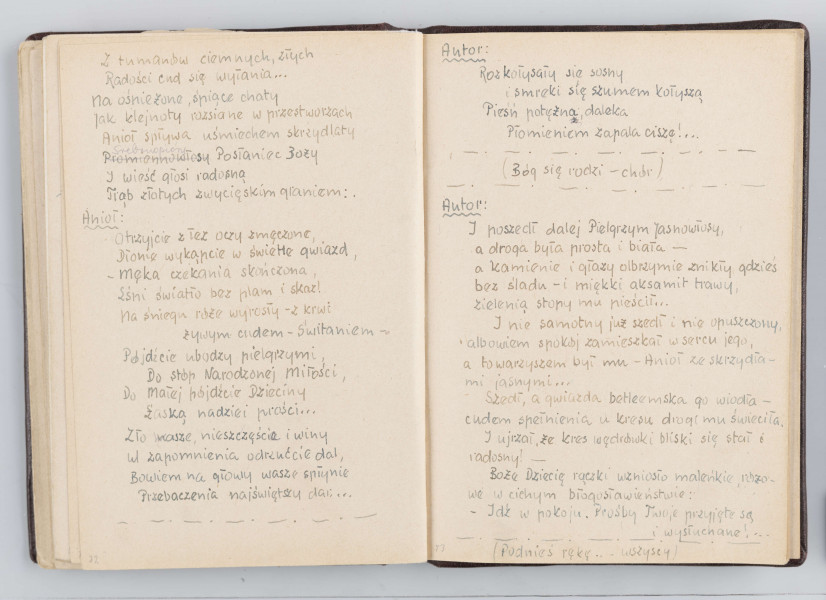 Z tumanów ciemnych, złych
Radości cud się wyłania...
Na ośnieżone, śpiące chaty
Jak klejnoty rozsiane w przestworzach
Anioł spływa uśmiechem skrzydlaty
Promiennowłosy Posłaniec Boży
I wieść głosi radosną
Trąb złotych zwycięskim graniem:.
Anioł:
Otrzyjcie z łez oczy zmęczone,
Dłonie wykąpcie w świetle gwiazd,
- Męka czekania skończona,
Lśni światło bez plam i skaz!
Na śniegu róże wyrosły - z krwi
żywym cudem - Świtaniem -
Pójdźcie ubodzy pielgrzymi,
Do stóp Narodzonej Miłości,
Do Małej pójdźcie Dzieciny
Łaską nadziei prości...
Zło wasze, nieszczęście i winy
W zapomnienia odrzućcie dal,
Bowiem na głowy wasze spłynie
Przebaczenia najświętszy dar...
22
Autor:
Rozkołysały się sosny
i smreki się szumem kołyszą
Pieśń potężna, daleka
Płomieniem zapala ciszę!...
(Bóg się rodzi - chór)
Autor:
I poszedł dalej Pielgrzym Jasnowłosy,
a droga była prosta i biała —
a kamienie i głazy olbrzymie znikły gdzieś
bez śladu - i miękki aksamit trawy,
zielenią stopy mu pieścił...
I nie samotny już szedł i nie opuszczony,
albowiem spokój zamieszkał w sercu jego,
a towarzyszem był mu - Anioł ze skrzydła-
mi jasnymi...
Szedł, a gwiazda betleemska go wiodła -
cudem spełnienia u kresu drogi mu świeciła.
I ujrzał, że kres wędrówki bliski się stał i
radosny! —
Boże Dziecię rączki wzniosło maleńkie, różo-
we w cichym błogosławieństwie:
- Idź w pokoju. Prośby Twoje przyjęte są
i wysłuchane!...
(Podnieś rękę... - wszyscy)
23